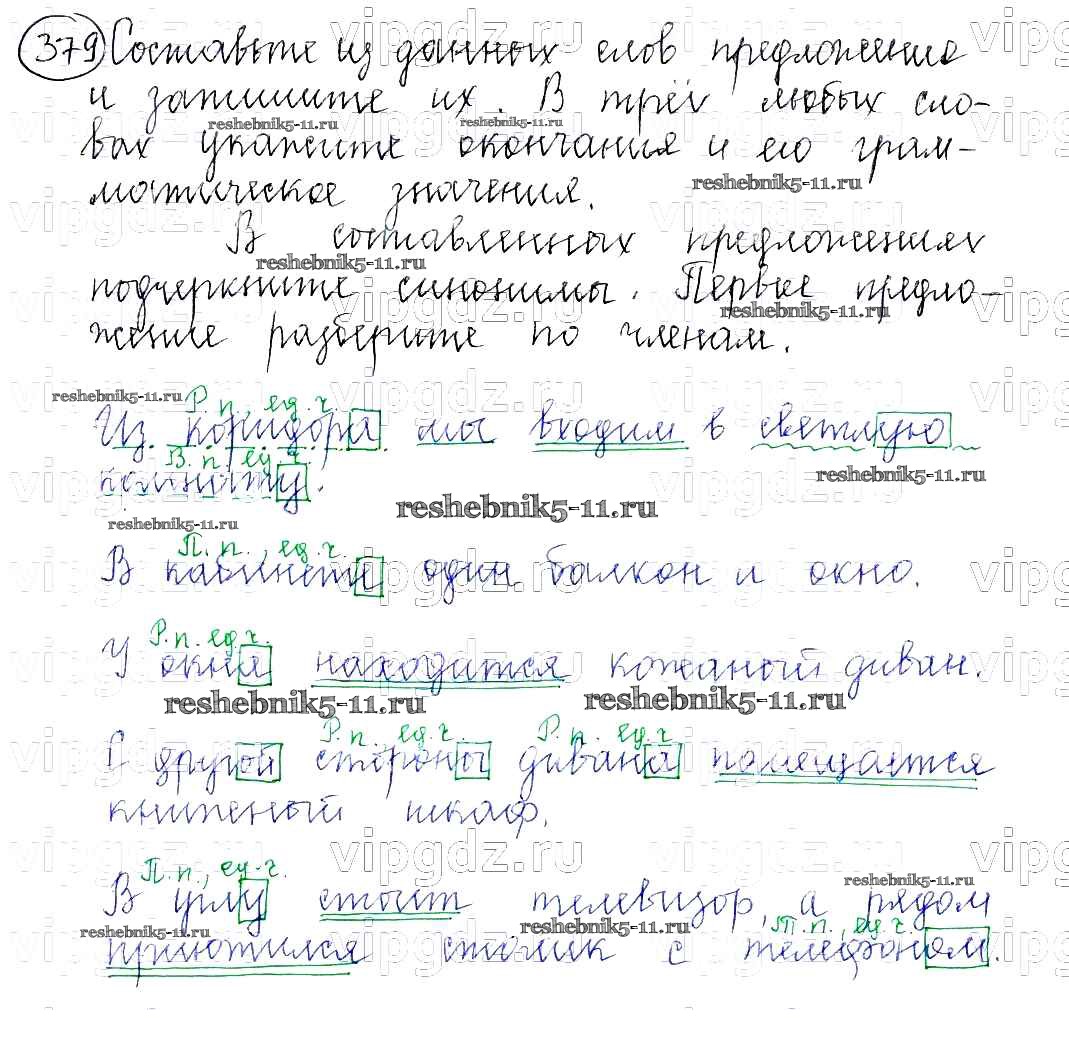 379 Составьте из данных слов предложение
и запишите их. В трёх любых сло-
вах укажите окончания и его грам-
матическое значения.
В составленных предложениях
подчеркните синонимы. Первое предло-
жение разберите по членам.
Р.п., ед.ч.
Из коридора мы входим в светлую
В.п. ед.ч.
комнату.
П.п., ед.ч.
В кабинете один балкон и окно.
Р.п. ед.ч.
У окна находится кожаный диван.
Р.п. ед.ч. Р.п. ед.ч.
С другой стороны дивана помещается
книжный шкаф.
П.п., ед.ч.
В углу стоит телевизор, а рядом
Т.п., ед.ч.
приютился столик с телефоном.
vipgdz.ru
reshebnik5-11.ru